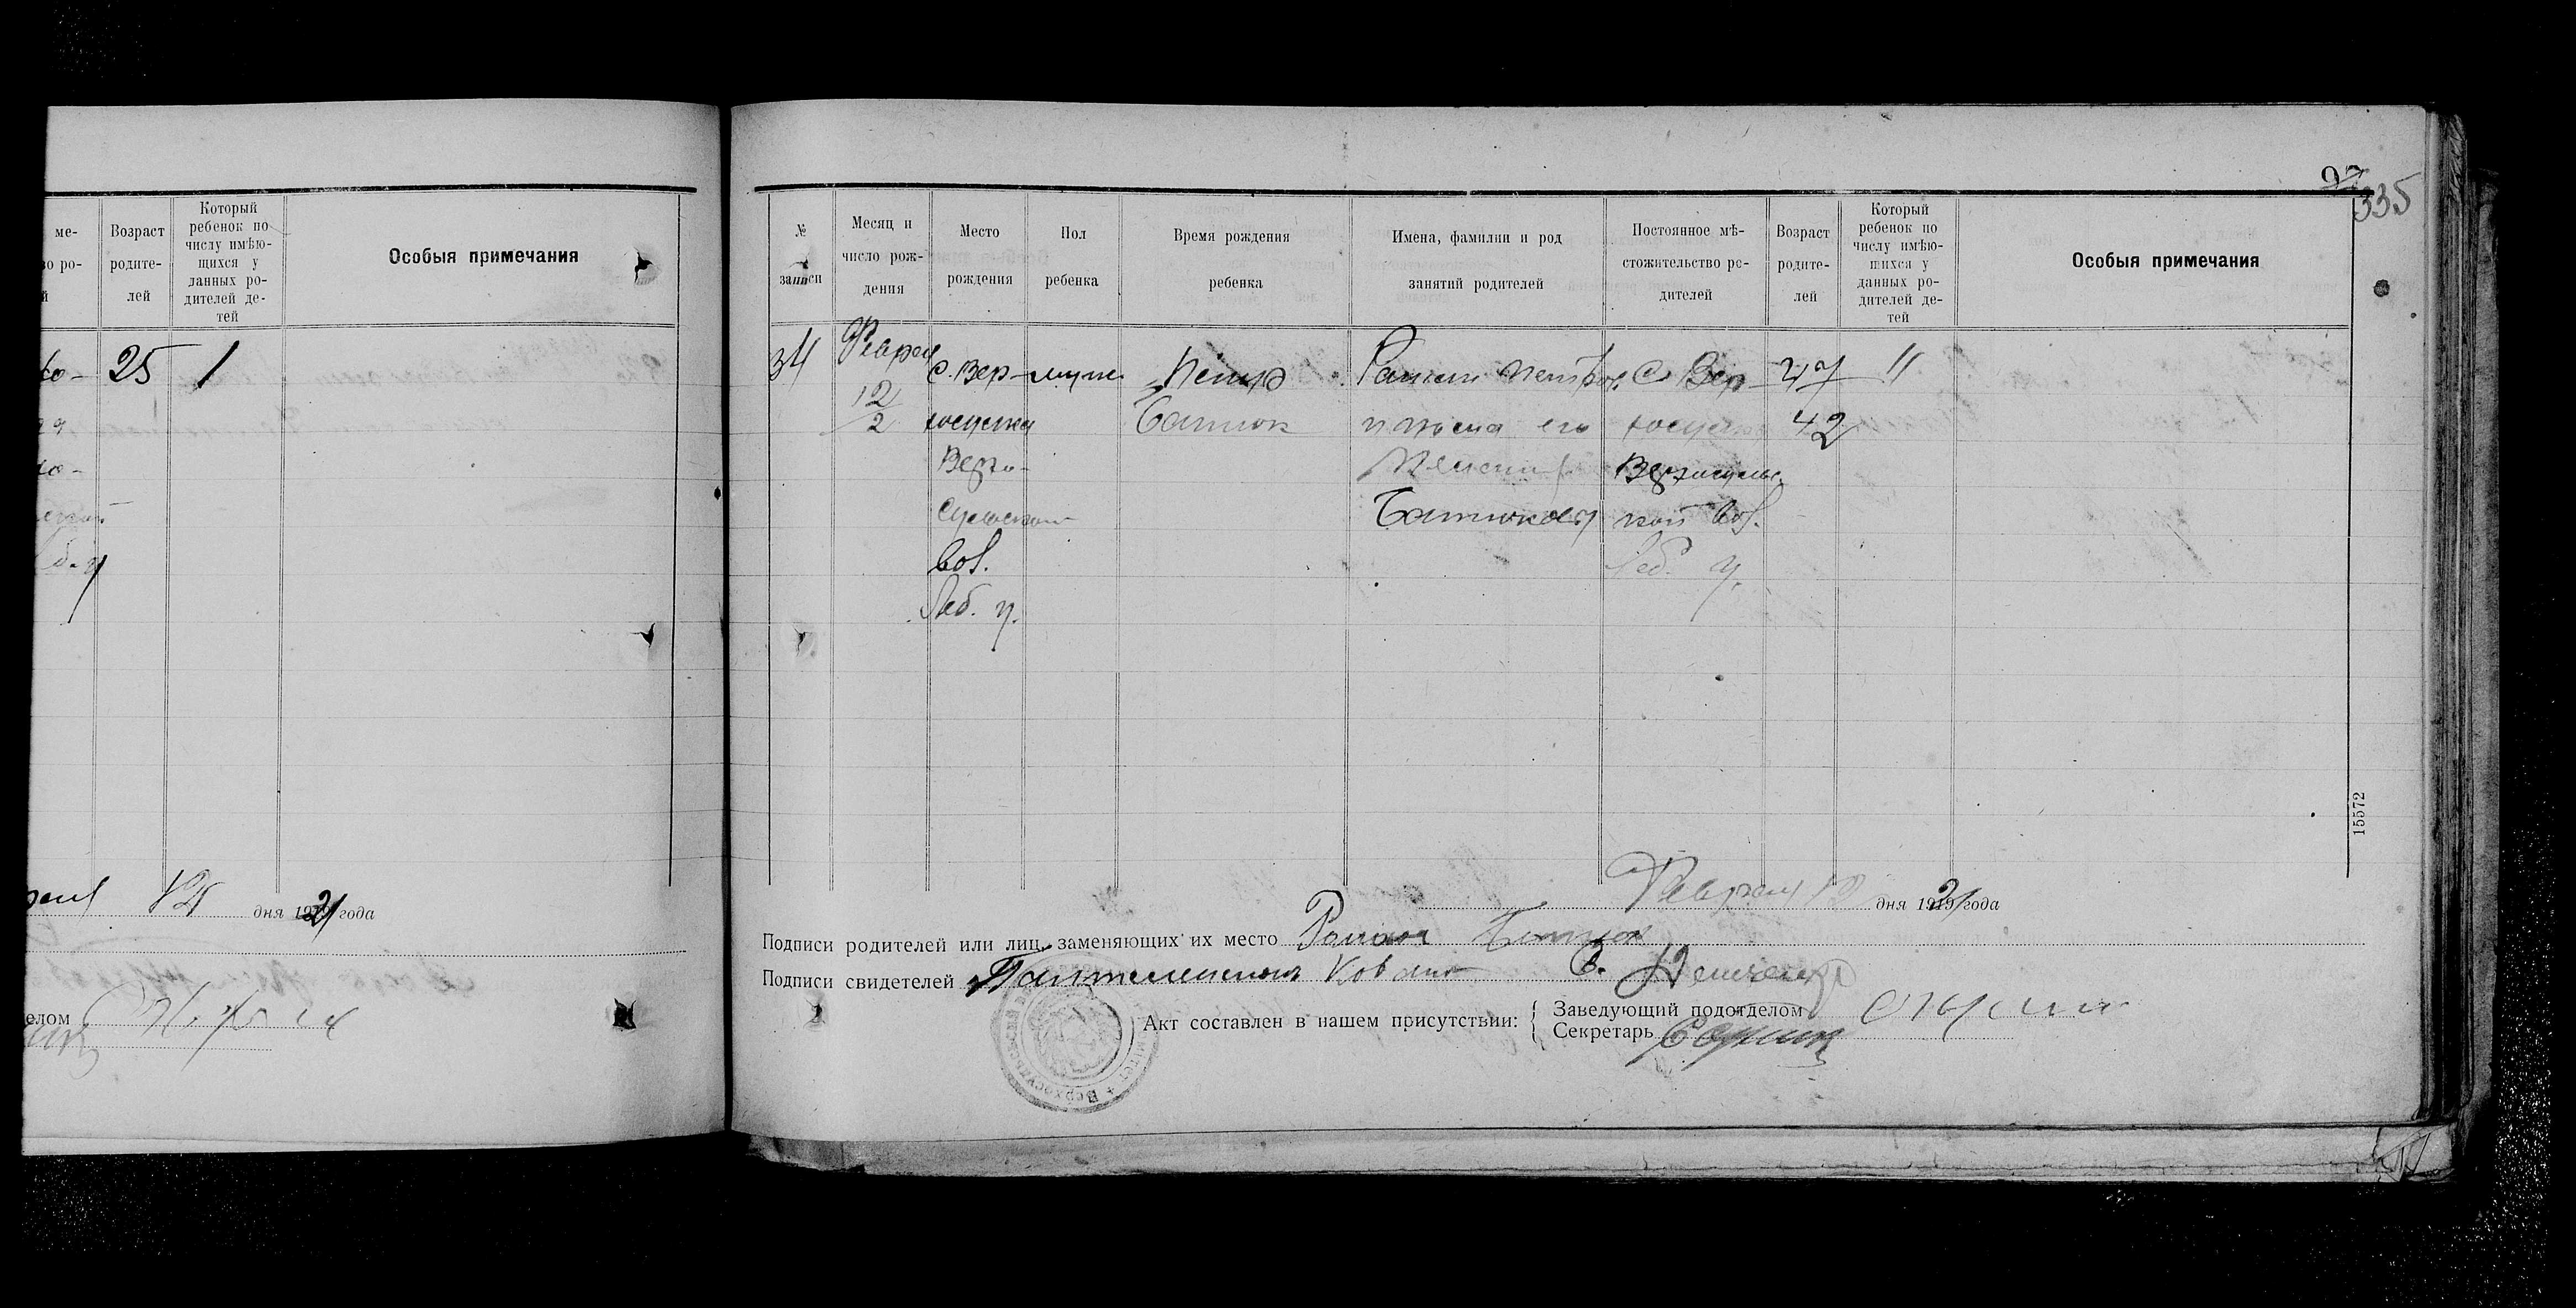 ме-
во ро-
й
Возраст
родите-
лей
Который
ребенок по
числу имѣю-
щихся у
данных ро-
дителей де-
тей
Особыя примечания
25
1
дня 1921 года
елом
97
335
№
записи
Месяц и
число рож-
дения
Место
рождения
Пол
ребенка
Время рождения
ребенка
Имена, фамилии и род
занятий родителей
Постоянное мѣ-
стожительство ро-
дителей
Возраст
родите-
лей
Который
ребенок по
числу имѣю-
щихся у
данных ро-
дителей де-
тей
Особыя примечания
34
Феврал
12
2
с. Вер-
хосулка
Верхо-
Сульской
вол.
Леб. у.
мужс.
Петр
Батюк
Роман Петров.
и жена его
Батюковы
с. Вер-
хосулка
Верхосульс-
кой вол.
Леб. у.
47
42
11
15572
Феврал 12 дня 1921 года
Подписи родителей или лиц, заменяющих их место Роман Батюк
Подписи свидетелей
Акт составлен в нашем присутствии:
Заведующий подотделом
Секретарь